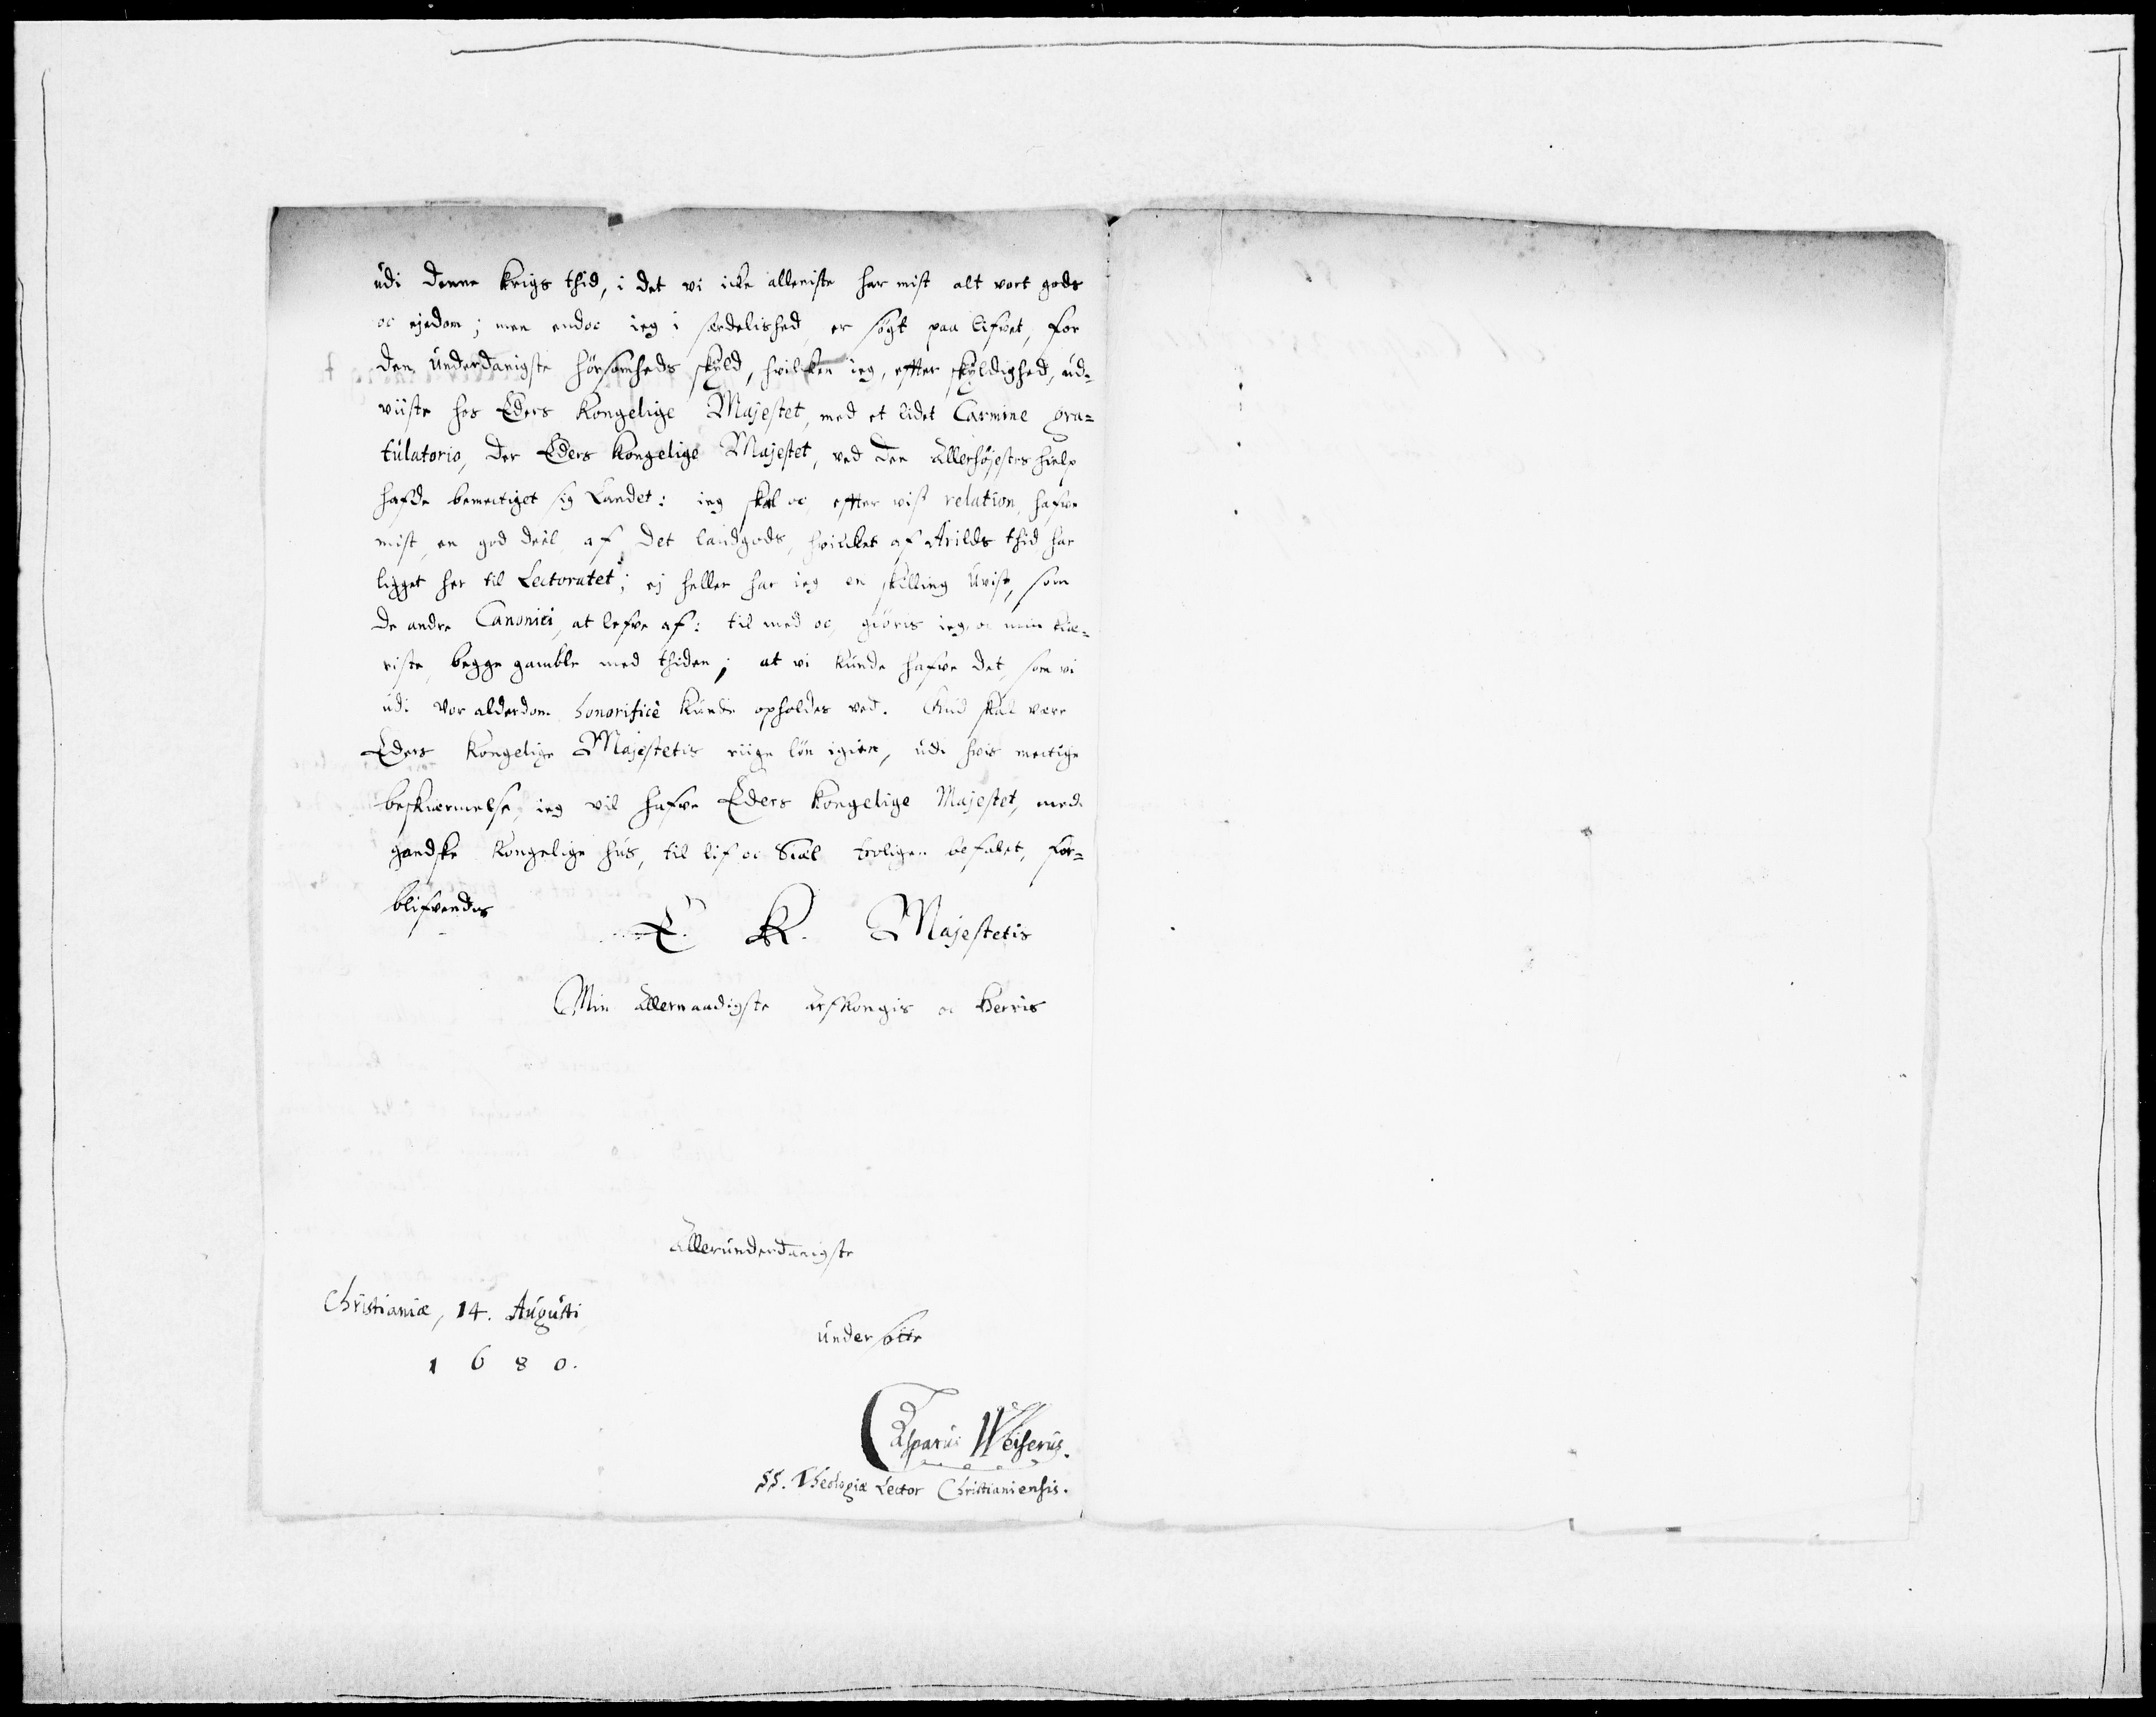 udi denne krigs thid, i det vi icke alleniste har mist alt vort gods
oc ejedom; men endoc ieg i særdelished er søgt paa lifvet, for
den underdanigste hørsomheds skyld, hvilken ieg, effter skyldighed, ud=
viiste hos Eders Kongelige Majestet, med et lidet Carmine gra=
tulatorio, der Eders Kongelige Majestet, ved den Allerhøjestes hielp
hafde bemectiget sig Landet: ieg skal oc effter vist relation, hafve
mist, en god deel af det landgods, hvilcket af Arilds thid har
ligget her til Lectoratet; ej heller har ieg en skilling uvist, som
de andre Canonici, at lefve af: til med oc, giøris ieg oc min kiæ=
riste, begge gamble med thiden; at vi kunde hafve det, som vi
udi vor alderdom honorificè kunde opholdes ved. Gud skal være
Eders Kongelige Majestetis riige løn igien, udi hvis mectige
beskiermelse, ieg vil hafve Eders Kongelige Majestet, med
gandske Kongelige hus, til lif oc Siæl troligen befalet, for=
blifvendes
E. K. Majestetis
Min Allernaadigste Arfkongis oc Herris
Allerunderdanigste
Christianiæ, 14. Augusti
undersotte
1680.
Casparus Weiserus.
SS. Theologiæ Lector Christianiensis.